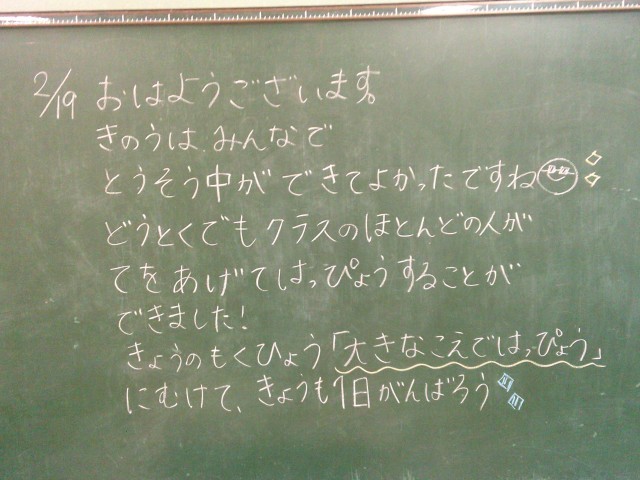 2/19 おはようございます。
きのうは、みんなで
とうそう中ができてよかったですね
どうとくでもクラスのほとんどの人が
てをあげてはっぴょうすることが
できました!
きょうのもくひょう「大きなこえではっぴょう」
にむけて、きょうも1日がんばろう